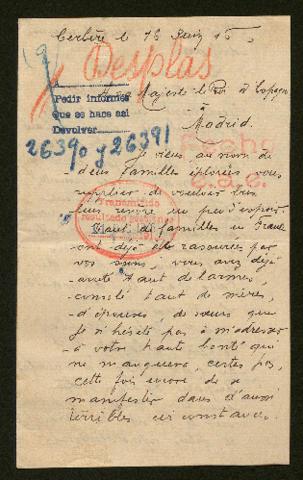 Cerbère le 16 Juin 15.
Desplas
Sa Majesté le Roi d'Espagne
Pedir informes
que se hace así
Devolver
à
Madrid.
26390 y 26391
Fecho
Je viens au nom de
deux familles éplorées vous
supplier de vouloir bien
leur rendre un peu d'espoir.
Transmitido
resultado
Tant de familles en France
ont déjà été rassurées par
vos soins, vous avez déjà
arrêté tant de larmes,
consolé tant de mères,
d'épouses, de sœurs que
je n'hésite pas à m'adresser
à votre haute bonté qui
ne manquera, certes pas,
cette fois encore de se
manifester dans d'aussi
terribles circonstances.